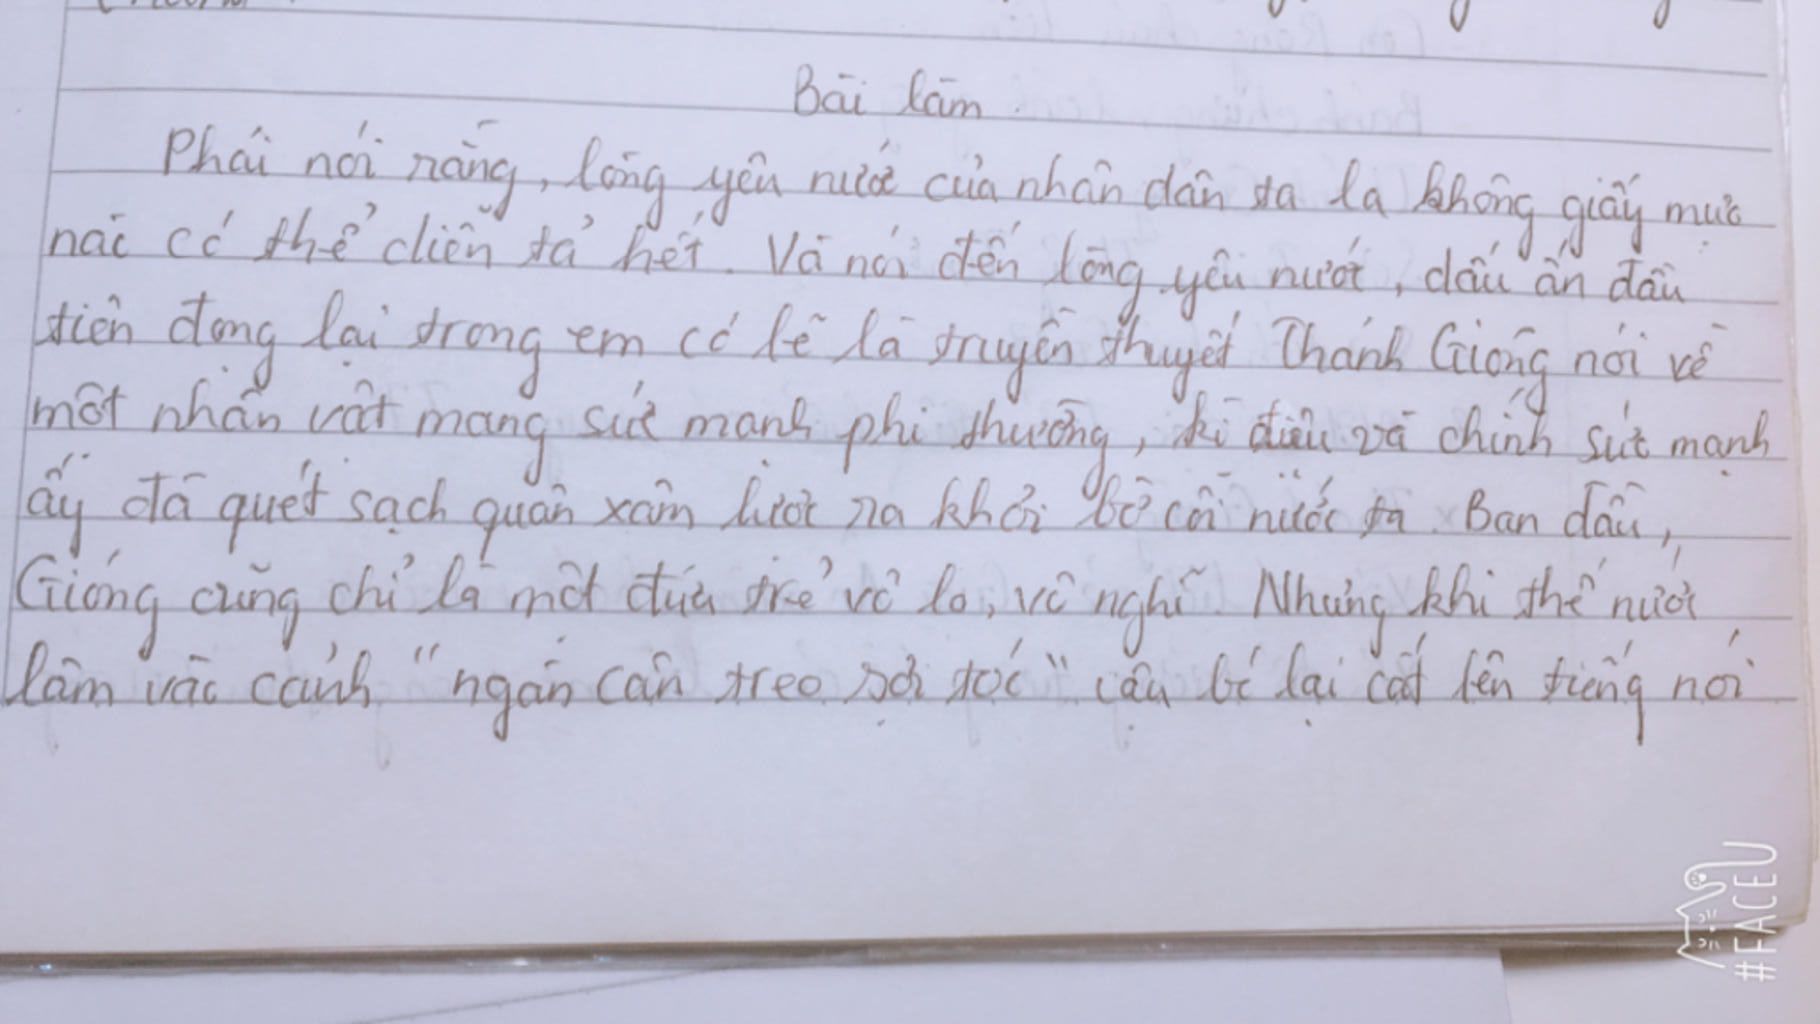 Bài làm
Phải nói rằng, lòng yêu nước của nhân dân ta là không giấy mực
nào có thể diễn tả hết. Và nói đến lòng yêu nước, dấu ấn đầu
tiên đọng lại trong em có lẽ là truyền thuyết Thánh Gióng nói về
một nhân vật mang sức mạnh phi thường, kì diệu và chính sức mạnh
ấy đã quét sạch quân xâm lược ra khỏi bờ cõi nước ta. Ban đầu,
Gióng cũng chỉ là một đứa trẻ vô lo, vô nghĩ. Nhưng khi thế nước
lâm vào cảnh "ngàn cân treo sợi tóc" cậu bé lại cất lên tiếng nói
#FACEU